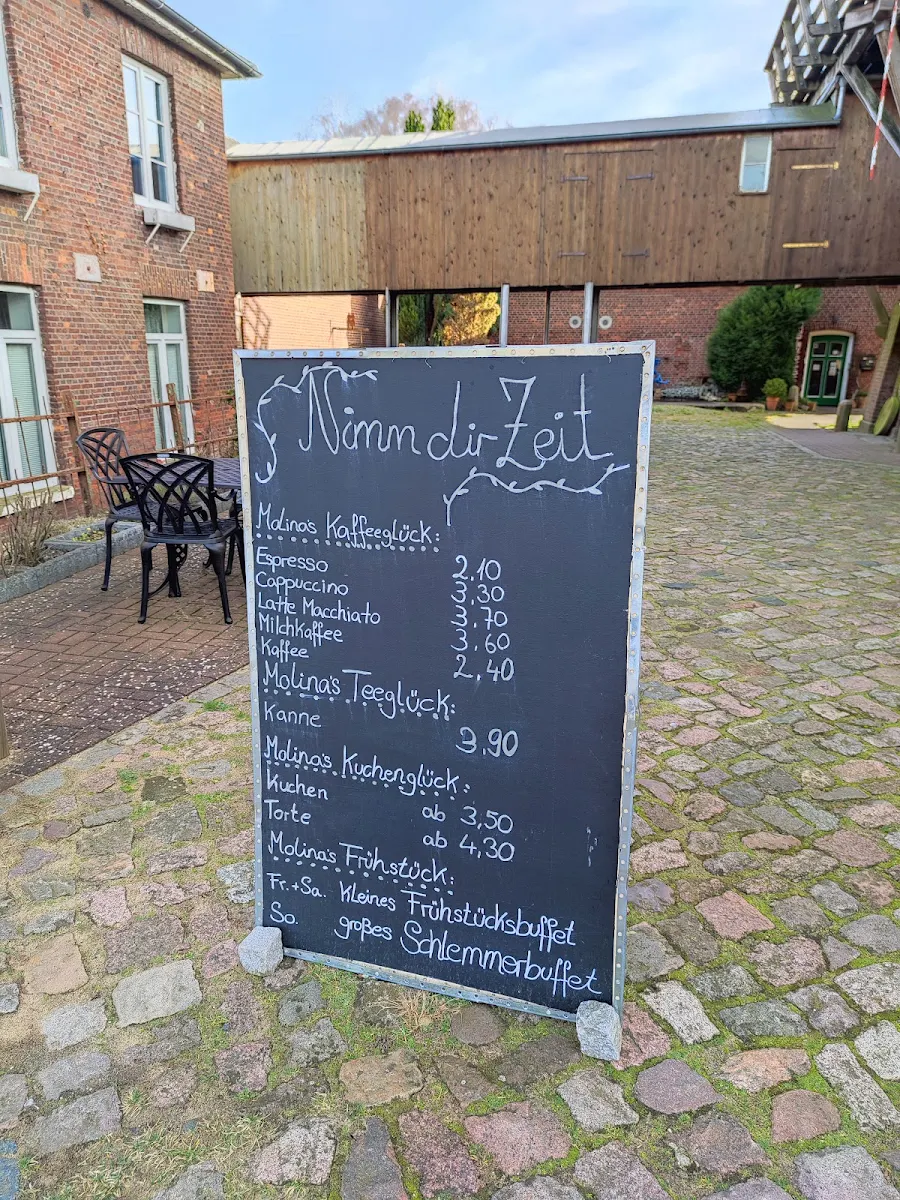 Nimm dir Zeit
Molina's Kaffeeglück:
Espresso 2,10
Cappuccino 3,30
Latte Macchiato 3,70
Milchkaffee 3,60
Kaffee 2,40
Molina's Teeglück:
Kanne 3,90
Molina's Kuchenglück:
Kuchen ab 3,50
Torte ab 4,30
Molina's Frühstück:
Fr.+Sa. kleines Frühstücksbuffet
So. großes Schlemmerbuffet